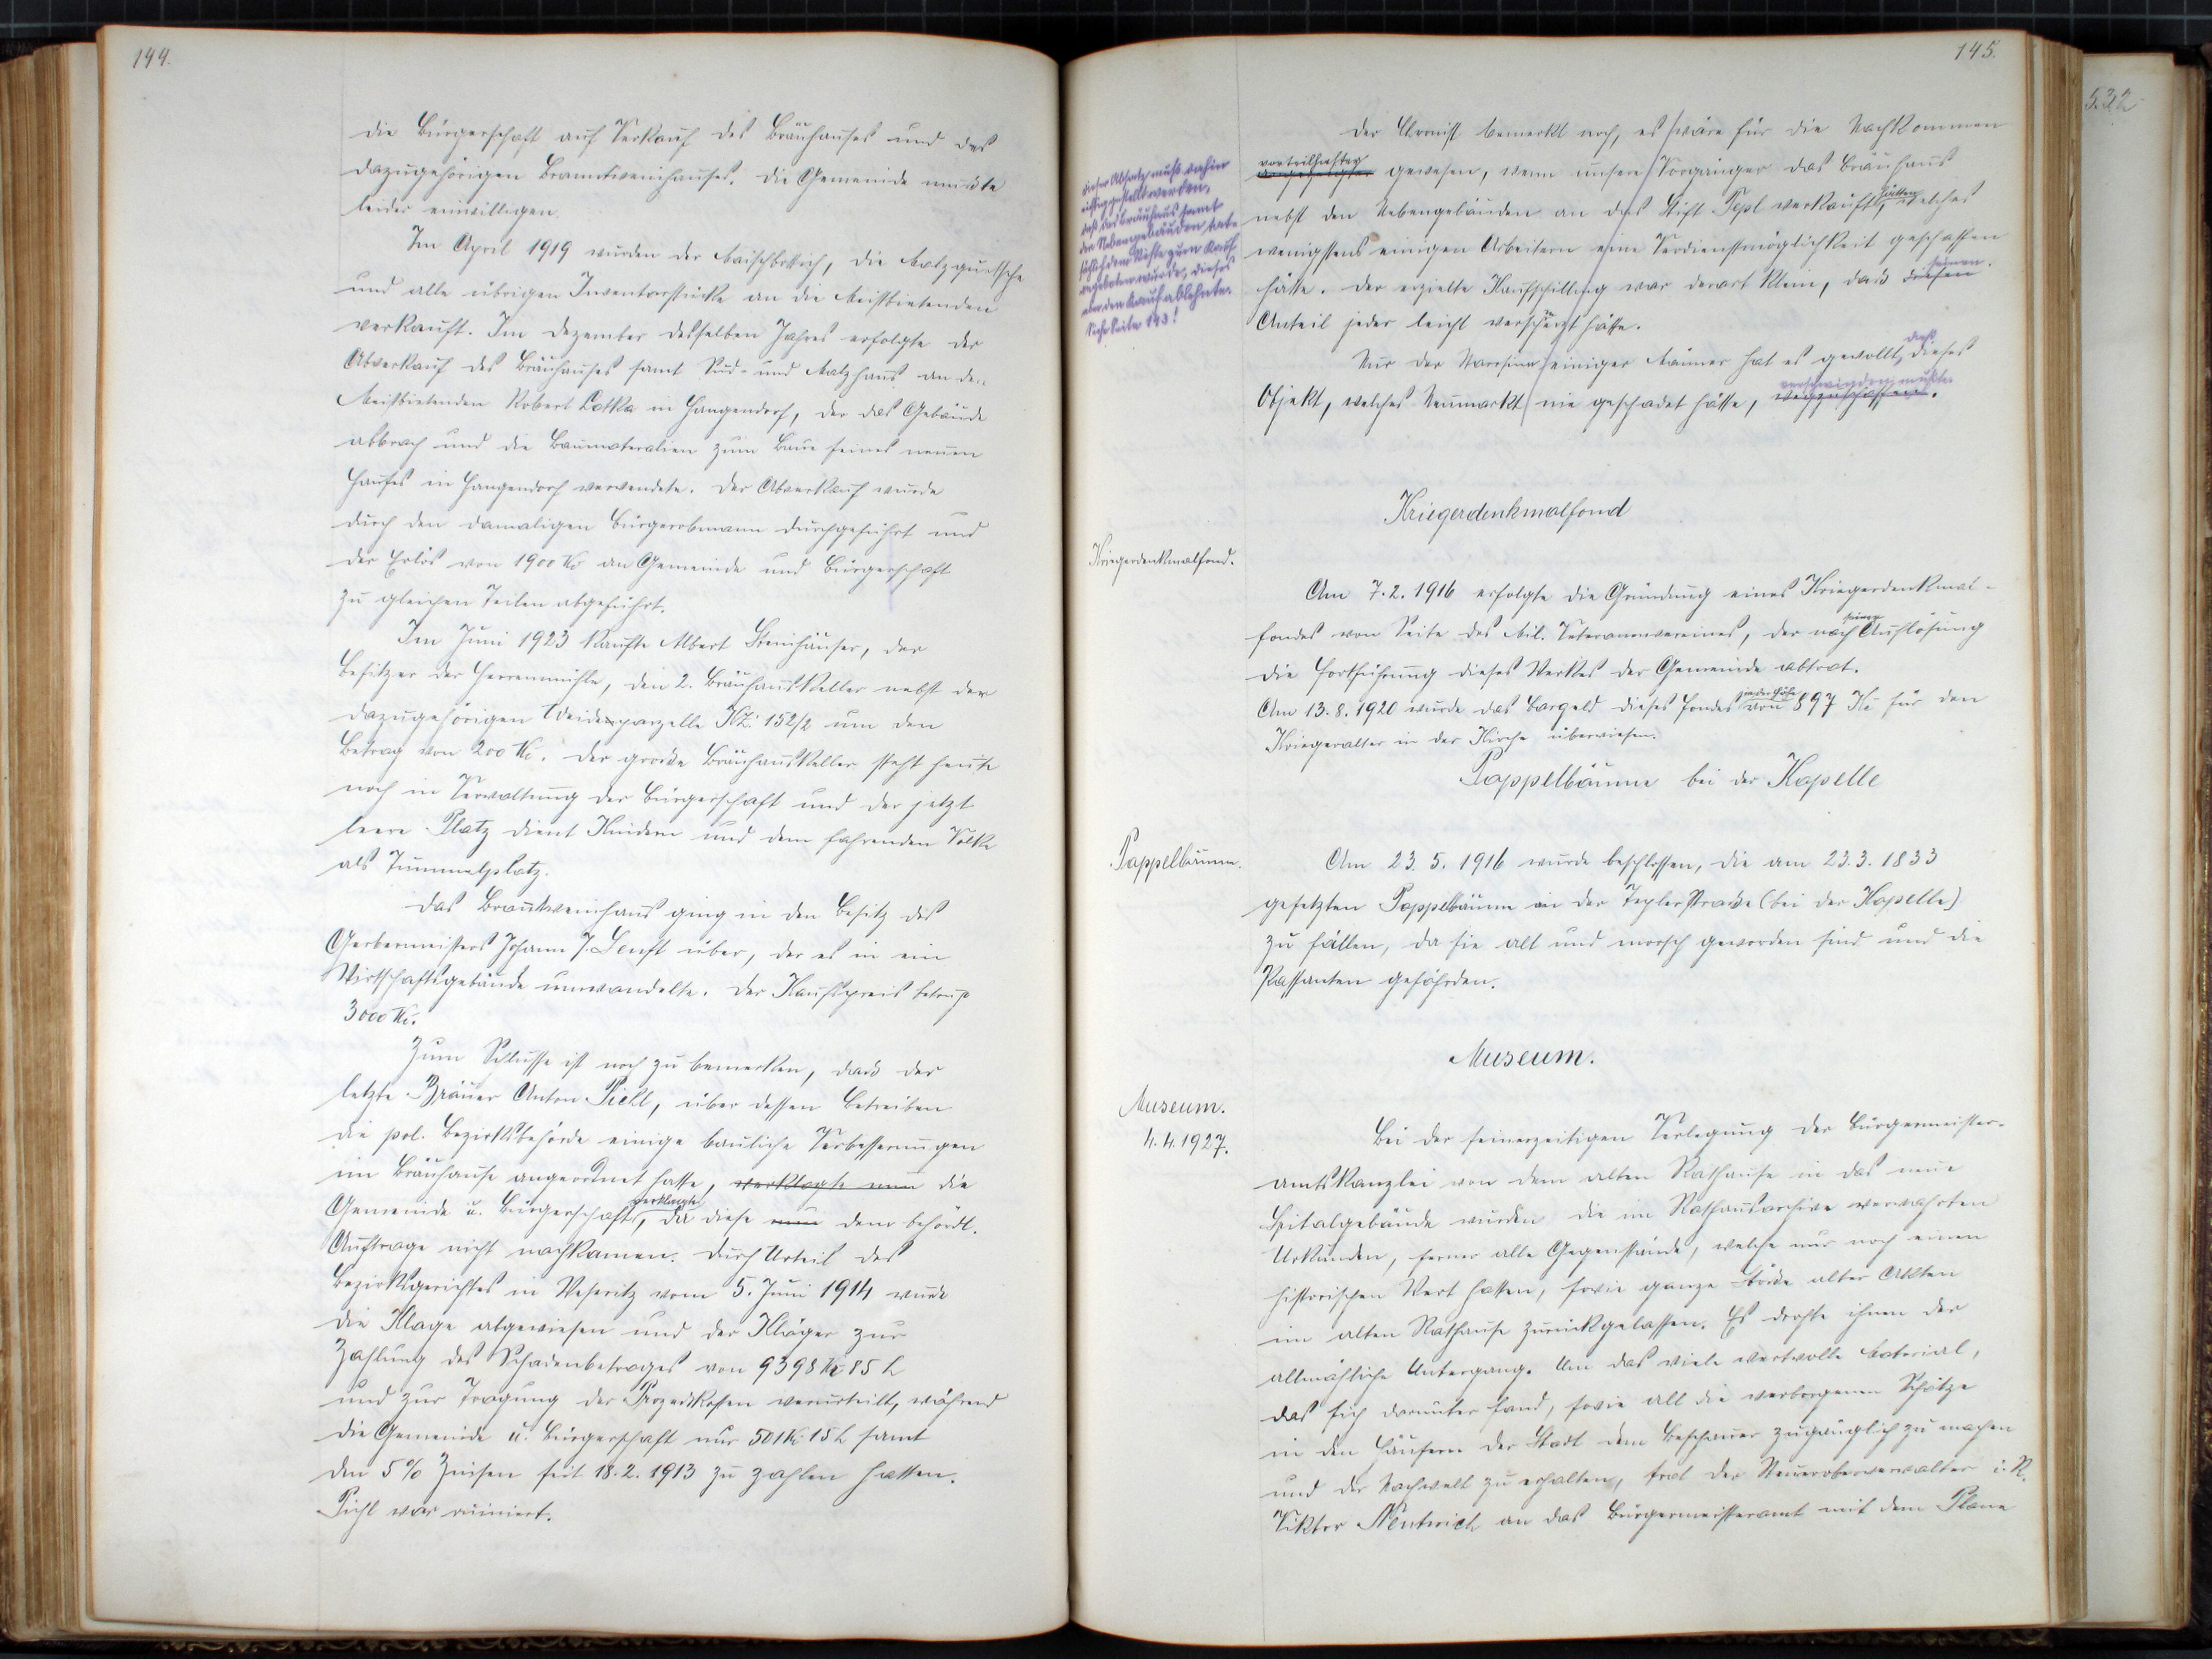 144.
die Bürgerschaft auf Verkauf des Bräuhauses und des
dazugehörigen Branntweinhauses. Die Gemeinde mußte
leider einwilligen.
Im April 1919 wurden der Maischbottich, die Malzquetsche
und alle übrigen Inventarstücke an die Meistbietenden
verkauft. Im Dezember desselben Jahres erfolgte der
Abverkauf des Bräuhauses samt Sud- und Malzhaus an den
Meistbietenden Robert Lotka in Hangendorf, der das Gebäude
abbrach und die Baumaterialien zum Baue seines neuen
Hauses in Hangendorf verwendete. Der Abverkauf wurde
durch den damaligen Bürgerobmann durchgeführt und
der Erlös von 1900 Kč an Gemeinde und Bürgerschaft
zu gleichen Teilen abgeführt.
Im Juni 1923 kaufte Albert Steinhäuser, der
Besitzer der Herrenmühle, den 2. Bräuhauskeller nebst der
dazugehörigen Weideparzelle KZ: 152/2 um den
Betrag von 200 Kč. Der große Bräuhauskeller steht heute
noch in Verwaltung der Bürgerschaft und der jetzt
leere Platz dient Kindern und dem fahrenden Volke
als Tummelplatz.
Das Branntweinhaus ging in den Besitz des
Gerbermeisters Johann J. Senft über, der es in ein
Wirtschaftsgebäude umwandelte. Der Kaufspreis betrug
3000 Kč.
Zum Schlusse ist noch zu bemerken, daß der
letzte Bräuer Anton Pichl, über dessen Betreiben
die pol. Bezirksbehörde einige bauliche Verbesserungen
im Bräuhause angeordnet hatte, verklagte nun die
Gemeinde u. Bürgerschaft verklagte, da diese nun dem behördl.
Auftrage nicht nachkamen. Durch Urteil des
Bezirksgerichtes in Weseritz vom 5. Juni 1914 wurde
die Klage abgewiesen und der Kläger zur
Zahlung des Schadenbetrages von 9398 Kč 85 h
und zur Tragung der Prozeßkosten verurteilt, während
die Gemeinde u. Bürgerschaft nur 501 Kč 15 h samt
den 5% Zinsen seit 18.2.1913 zu zahlen hatten.
Pichl war ruiniert.
145.
Der Chronist bemerkt noch, es wäre für die Nachkommen
vorteilhafter
gewesen, wenn unsere Vorgänger das Bräuhaus
nebst den Nebengebäuden an das Stift Tepl verkauft hätten, welches
wenigstens einigen Arbeitern eine Verdienstmöglichkeit geschaffen
hätte. Der erzielte Kaufschilling war derart klein, daß diesen seinen
Anteil jeder leicht verschmerzt hätte.
Nur der Starrsinn einiger Männer hat es gewollt, daß dieses
Objekt, welches Neumarkt nie geschadet hätte, wegzuschaffen. verschwinden mußte.
dieser Absatz muß dahin
richtiggestellt werden,
daß das Bräuhaus samt
den Nebengebäuden tat-
sächlich dem Stifte zum Kauf
angeboten wurde, dieses
aber den Kauf ablehnte.
Siehe Seite 143!
Kriegerdenkmalfond
Kriegerdenkmalfond.
Am 7.2.1916 erfolgte die Gründung eines Kriegerdenkmal-
fondes von Seite des Mil. Veteranenvereines, der nach seiner Auflösung
die Fortführung dieses Werkes der Gemeinde abtrat.
Am 13.8.1920 wurde das Bargeld dieses Fondes in der Höhe von 897 Kč für den
Kriegeraltar in der Kirche überwiesen.
Pappelbäume bei der Kapelle
Pappelbäume.
Am 23.5.1916 wurde beschlossen, die am 23.3.1833
gesetzten Pappelbäume an der Teplerstraße (bei der Kapelle)
zu fällen, da sie alt und morsch geworden sind und die
Passanten gefährden.
Museum.
Museum.
4.4.1927.
Bei der seinerzeitigen Verlegung der Bürgermeister-
amtskanzlei von dem alten Rathause in das neue
Spitalgebäude wurden die im Rathausarchive verwahrten
Urkunden, ferner alle Gegenstände, welche nur noch einen
historischen Wert hatten, sowie ganze Stöße alter Akten
im alten Rathause zurückgelassen. Es drohte ihnen der
allmähliche Untergang. Um das viele wertvolle Material,
das sich darunter fand, sowie all die verborgenen Schätze
in den Häusern der Stadt dem Beschauer zugänglich zu machen
und der Nachwelt zu erhalten, trat der Steueroberverwalter i. R.
Viktor Nentwich an das Bürgermeisteramt mit dem Plane
532